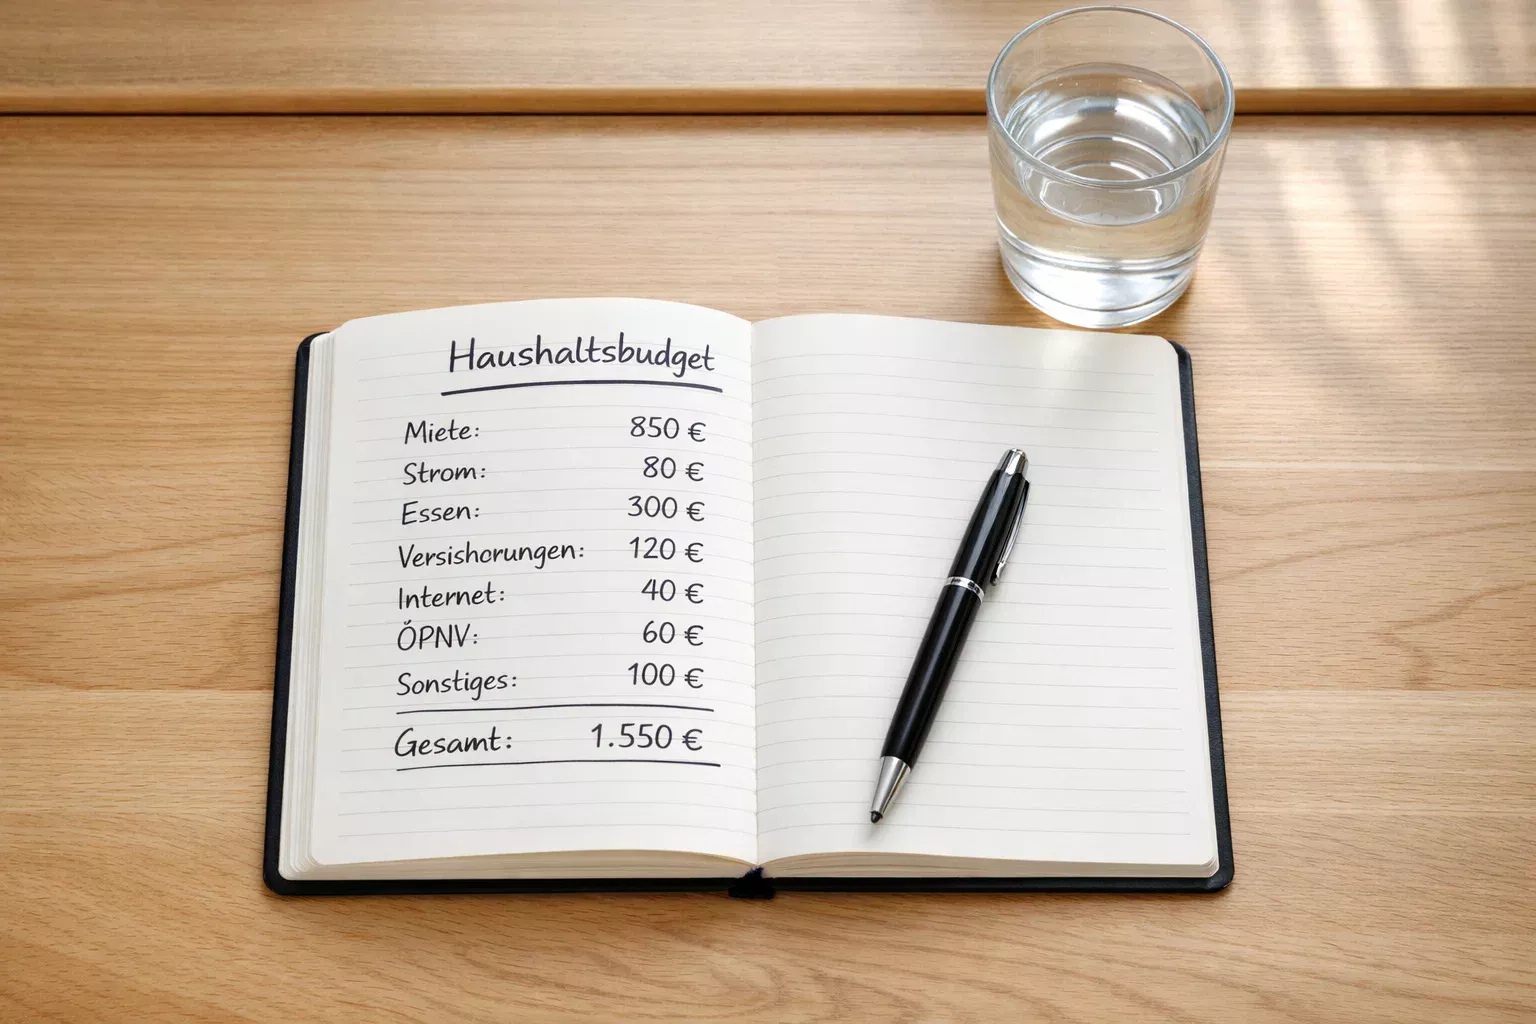 Haushaltsbudget
Miete: 850 €
Strom: 80 €
Essen: 300 €
Versishorungen: 120 €
Internet: 40 €
ÖPNV: 60 €
Sonstiges: 100 €
Gesamt: 1.550 €